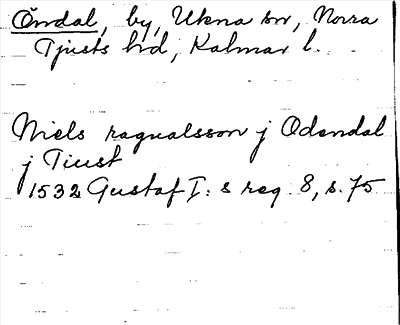 Öndal, by, Ukna sn, Norra
Tjusts hd, Kalmar l.
Niels ragualsson j Odendal
j Tiust
1532 Gustaf I: s reg. 8, s. 75